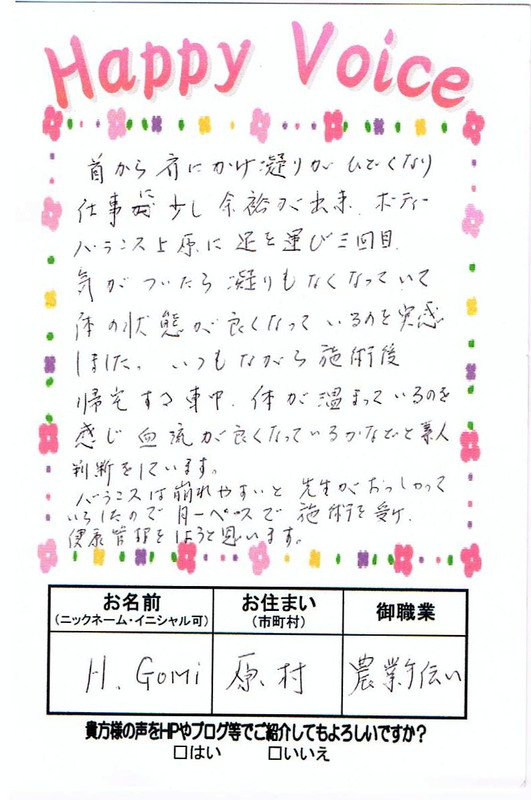 Happy Voice
首から肩にかけ凝りがひどくなり
仕事に少し余裕が出来、ボディー
バランス上原に足を運び三回目、
気がついたら凝りもなくなっていて
体の状態が良くなっているのを実感
しました。いつもながら施術後
帰宅する車中、体が温まっているのを
感じ血流が良くなっているかなどと素人
判断をしています。
バランスは崩れやすいと先生がおっしゃって
いらしたので月一ペースで施術を受け、
健康管理をしようと思います。
お名前 お住まい 御職業
(ニックネーム・イニシャル可) (市町村)
H. Gomi 原村 農業手伝い
貴方様の声をHPやブログ等でご紹介してもよろしいですか?
□はい □いいえ